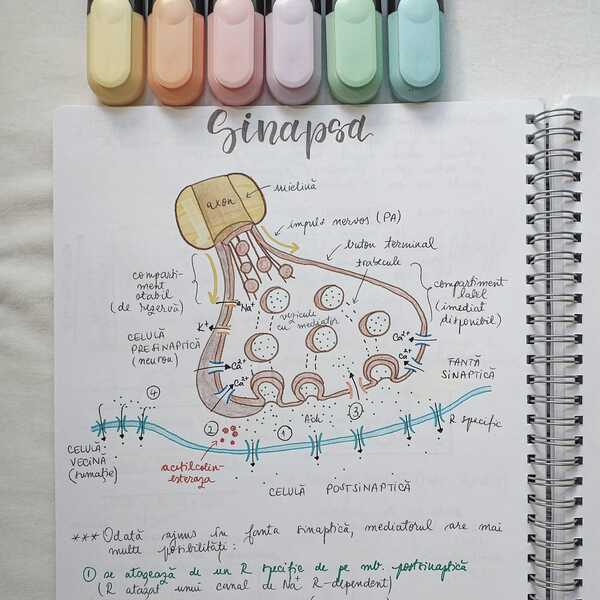 Sinapsa
axon
mielină
impuls nervos (PA)
buton terminal
trabecule
comparti-
ment
stabil
(de rezervă)
compartiment
labil
(imediat
disponibil)
Na⁺
K⁺
vezicule
cu mediator
CELULĂ
PRESINAPTICĂ
(neuron)
Ca²⁺
Ca²⁺
Ca²⁺
Ca²⁺
FANTĂ
SINAPTICĂ
④
②
①
Ach
③
R specific
CELULĂ
VECINĂ
(sumație)
acetilcolin-
esteraza
CELULĂ POSTSINAPTICĂ
*** Odată ajuns în fanta sinaptică, mediatorul are mai
multe posibilități:
① se atașează de un R specific de pe mb. postsinaptică
(R atașat unui canal de Na⁺ R-dependent)